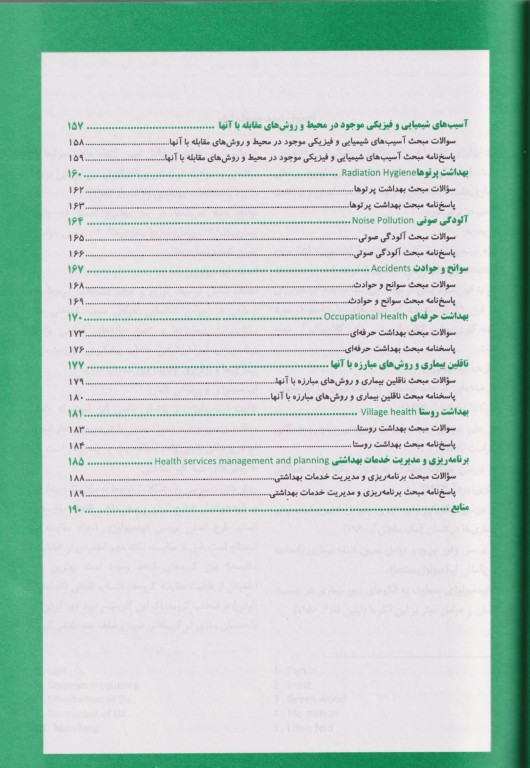 آسیب‌های شیمیایی و فیزیکی موجود در محیط و روش‌های مقابله با آنها ........ ۱۵۷
سوالات مبحث آسیب‌های شیمیایی و فیزیکی موجود در محیط و روش‌های مقابله با آنها ........ ۱۵۸
پاسخ‌نامه مبحث آسیب‌های شیمیایی و فیزیکی موجود در محیط و روش‌های مقابله با آنها ........ ۱۵۹
بهداشت پرتوها Radiation Hygiene ........ ۱۶۰
سؤالات مبحث بهداشت پرتوها ........ ۱۶۲
پاسخ‌نامه مبحث بهداشت پرتوها ........ ۱۶۳
آلودگی صوتی Noise Pollution ........ ۱۶۴
سوالات مبحث آلودگی صوتی ........ ۱۶۵
پاسخ‌نامه مبحث آلودگی صوتی ........ ۱۶۶
سوانح و حوادث Accidents ........ ۱۶۷
سوالات مبحث سوانح و حوادث ........ ۱۶۸
پاسخ‌نامه مبحث سوانح و حوادث ........ ۱۶۹
بهداشت حرفه‌ای Occupational Health ........ ۱۷۰
سوالات مبحث بهداشت حرفه‌ای ........ ۱۷۳
پاسخنامه مبحث بهداشت حرفه‌ای ........ ۱۷۶
ناقلین بیماری و روش‌های مبارزه با آنها ........ ۱۷۷
سؤالات مبحث ناقلین بیماری و روش‌های مبارزه با آنها ........ ۱۷۹
پاسخنامه مبحث ناقلین بیماری و روش‌های مبارزه با آنها ........ ۱۸۰
بهداشت روستا Village health ........ ۱۸۱
سوالات مبحث بهداشت روستا ........ ۱۸۳
پاسخ‌نامه مبحث بهداشت روستا ........ ۱۸۴
برنامه‌ریزی و مدیریت خدمات بهداشتی Health services management and planning ........ ۱۸۵
سؤالات مبحث برنامه‌ریزی و مدیریت خدمات بهداشتی ........ ۱۸۸
پاسخ‌نامه مبحث برنامه‌ریزی و مدیریت خدمات بهداشتی ........ ۱۸۹
منابع ........ ۱۹۰